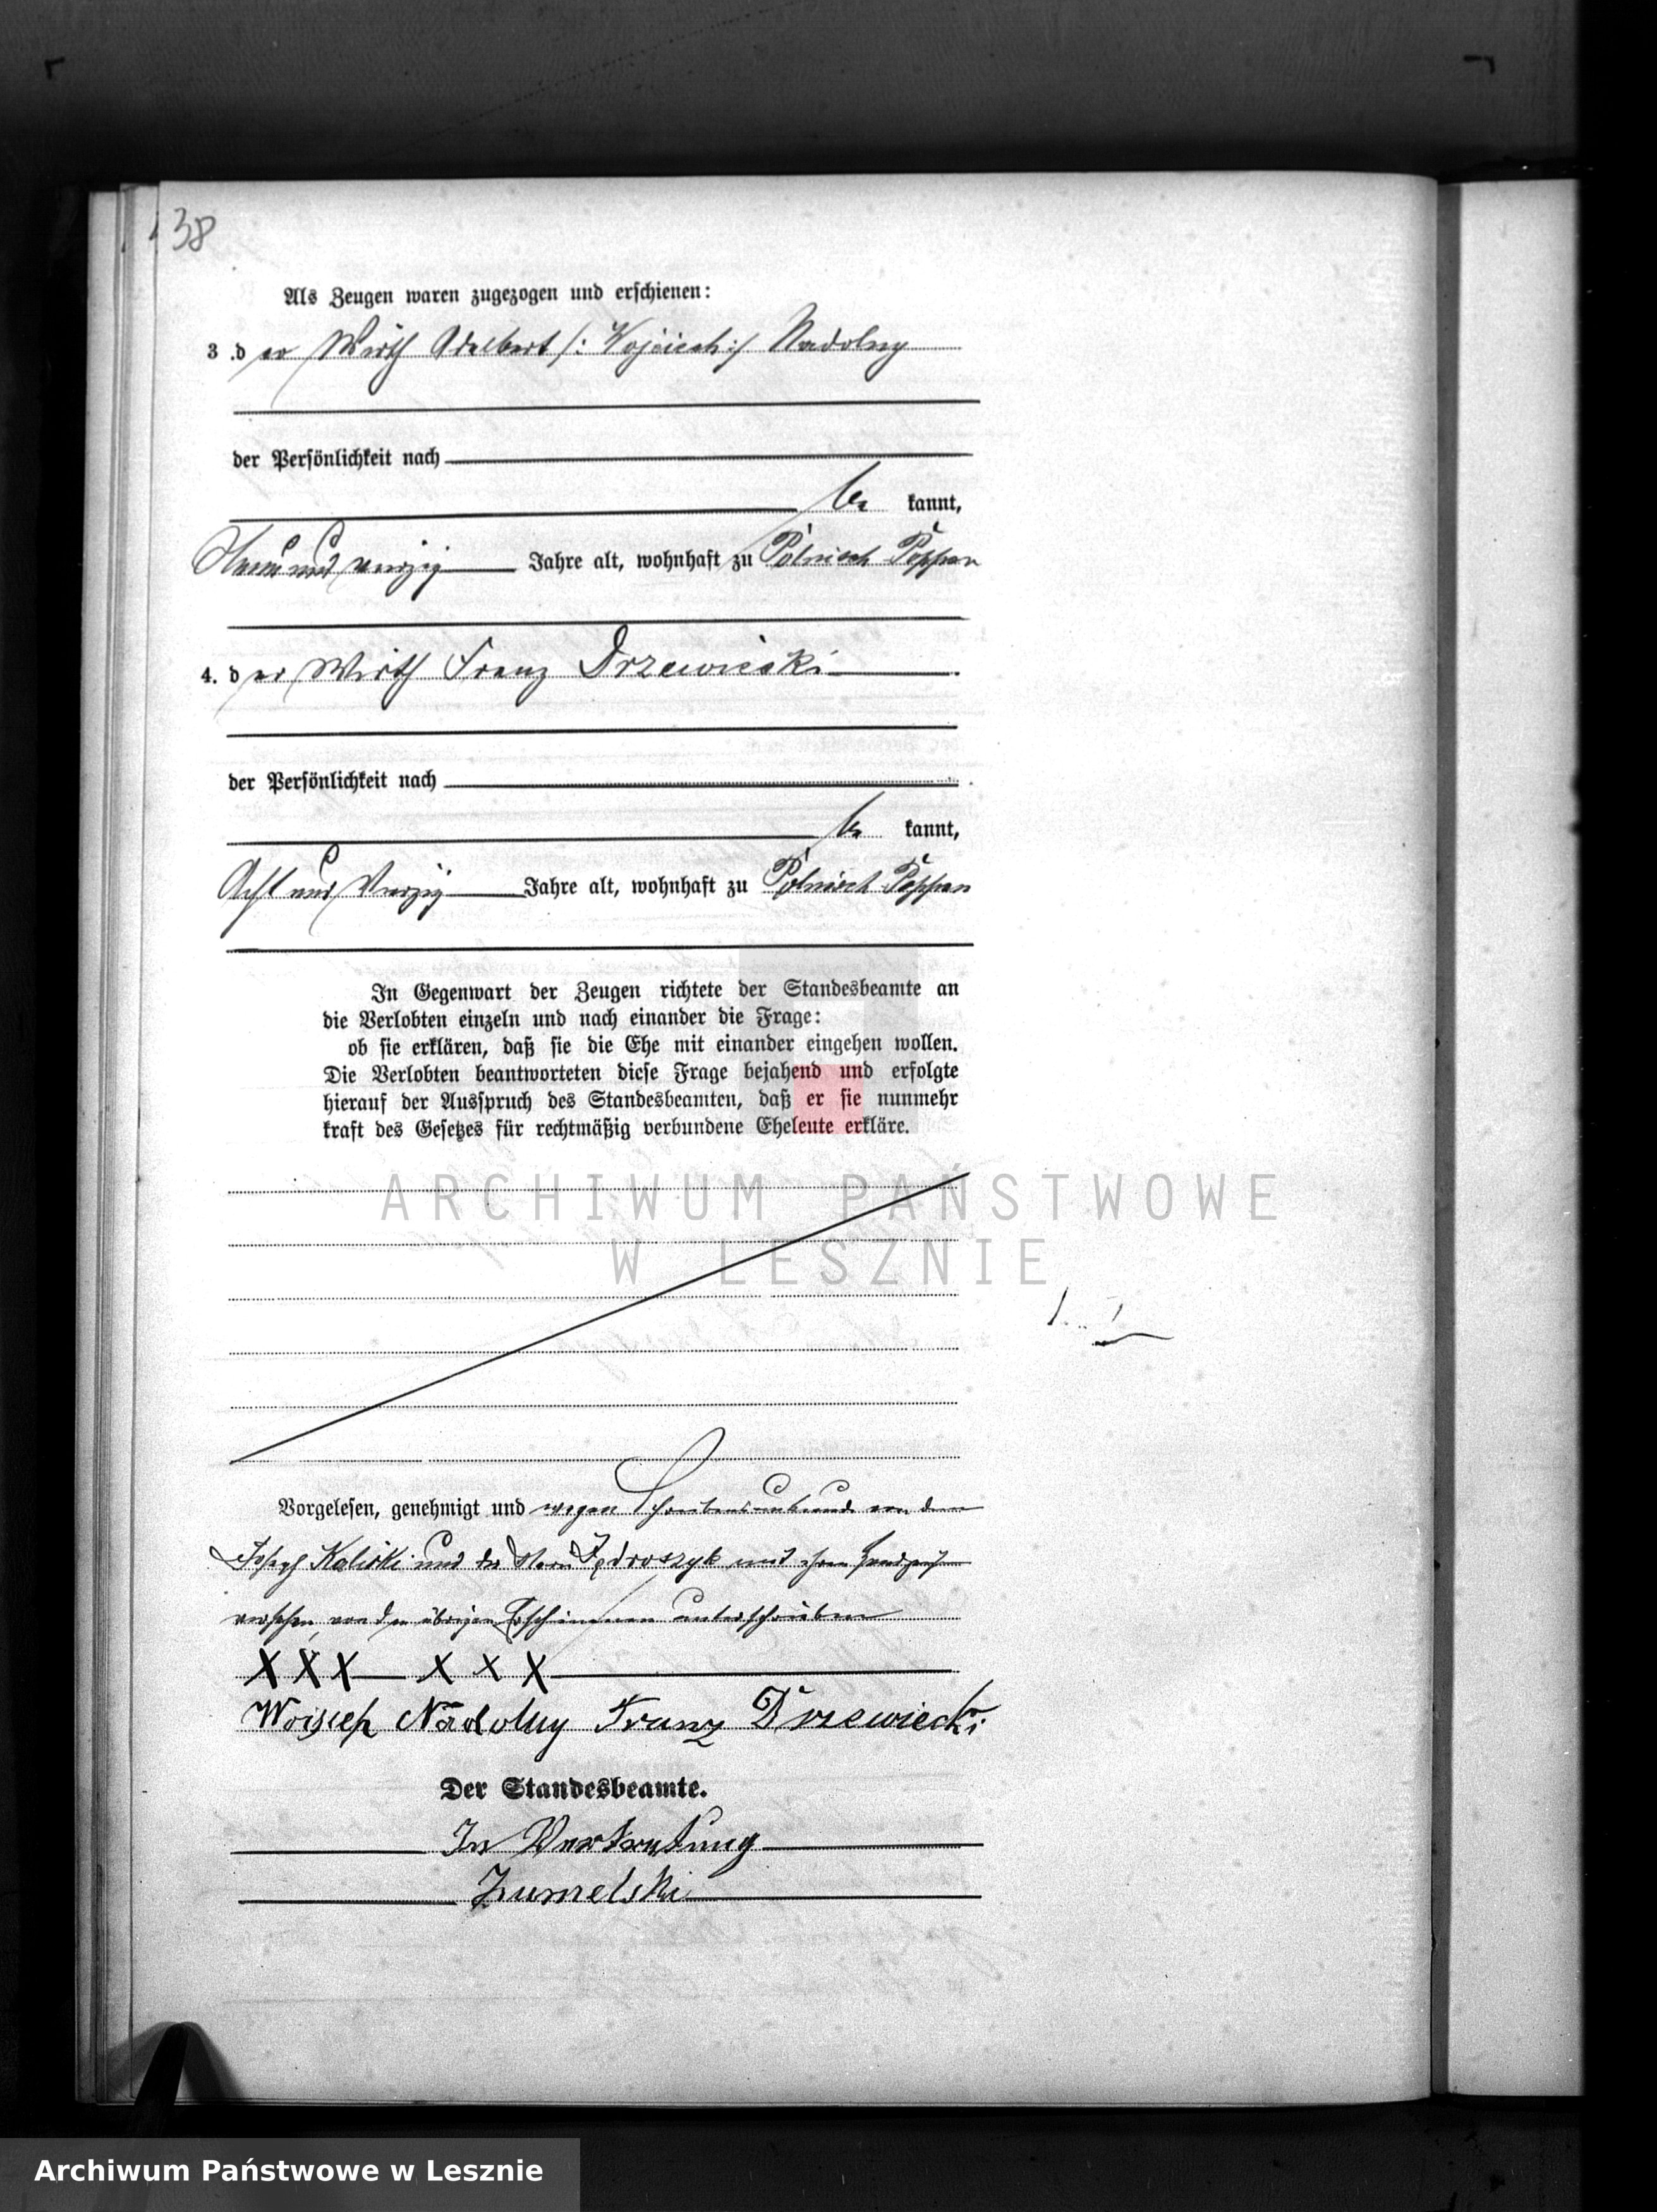 38
Als Zeugen waren zugezogen und erschienen:
3. der Wirth Adalbert /: Wojciech :/ Nadolny
der Persönlichkeit nach
be kannt,
und vierzig Jahre alt, wohnhaft zu Polnisch Poppen
4. der Wirth Franz Drzewiecki
der Persönlichkeit nach
be kannt,
Acht und Vierzig Jahre alt, wohnhaft zu Polnisch Poppen
In Gegenwart der Zeugen richtete der Standesbeamte an
die Verlobten einzeln und nach einander die Frage:
ob sie erklären, daß sie die Ehe mit einander eingehen wollen.
Die Verlobten beantworteten diese Frage bejahend und erfolgte
hierauf der Ausspruch des Standesbeamten, daß er sie nunmehr
kraft des Gesetzes für rechtmäßig verbundene Eheleute erkläre.
ARCHIWUM PAŃSTWOWE
W LESZNIE
Vorgelesen, genehmigt und wegen Schreibensunkunde von dem
Joseph Kaliski und der Jędroszyk mit ihrem Handzeichen
versehen, von den übrigen Erschienenen unterschrieben
XXX XXX
Woiscieh Nadolny Franz Drzewiecki
Der Standesbeamte.
In Vertretung
Archiwum Państwowe w Lesznie